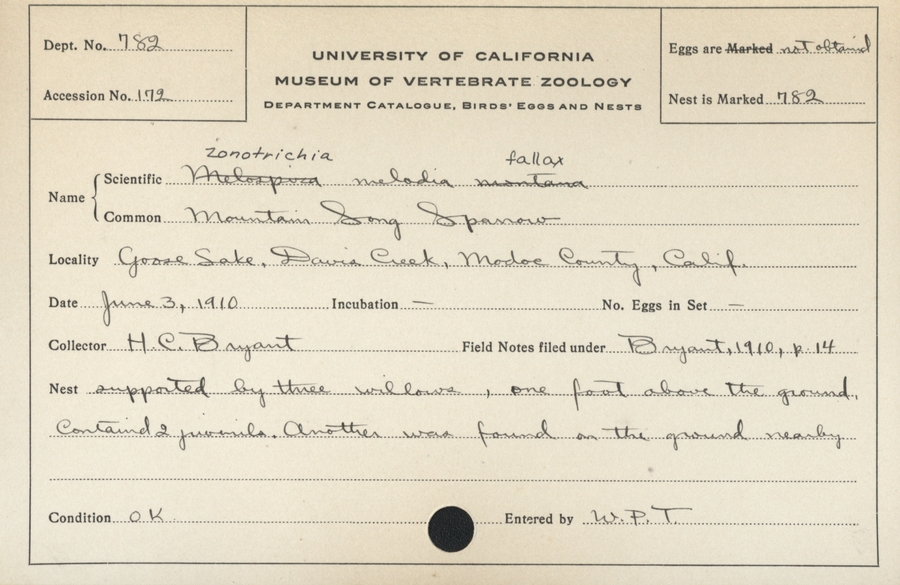 Dept. No. 782
Accession No. 172
UNIVERSITY OF CALIFORNIA
MUSEUM OF VERTEBRATE ZOOLOGY
DEPARTMENT CATALOGUE, BIRDS' EGGS AND NESTS
Eggs are Marked not obtained
Nest is Marked 782
zonotrichia fallax
Name Scientific Melospiza melodia montana
Common Mountain Song Sparrow
Locality Goose Lake, Davis Creek, Modoc County, Calif.
Date June 3, 1910 Incubation — No. Eggs in Set —
Collector H. C. Bryant Field Notes filed under Bryant, 1910, p. 14
Nest supported by three willows, one foot above the ground.
Contained 2 juvenils. Another was found on the ground nearby
Condition OK Entered by W. P. T.